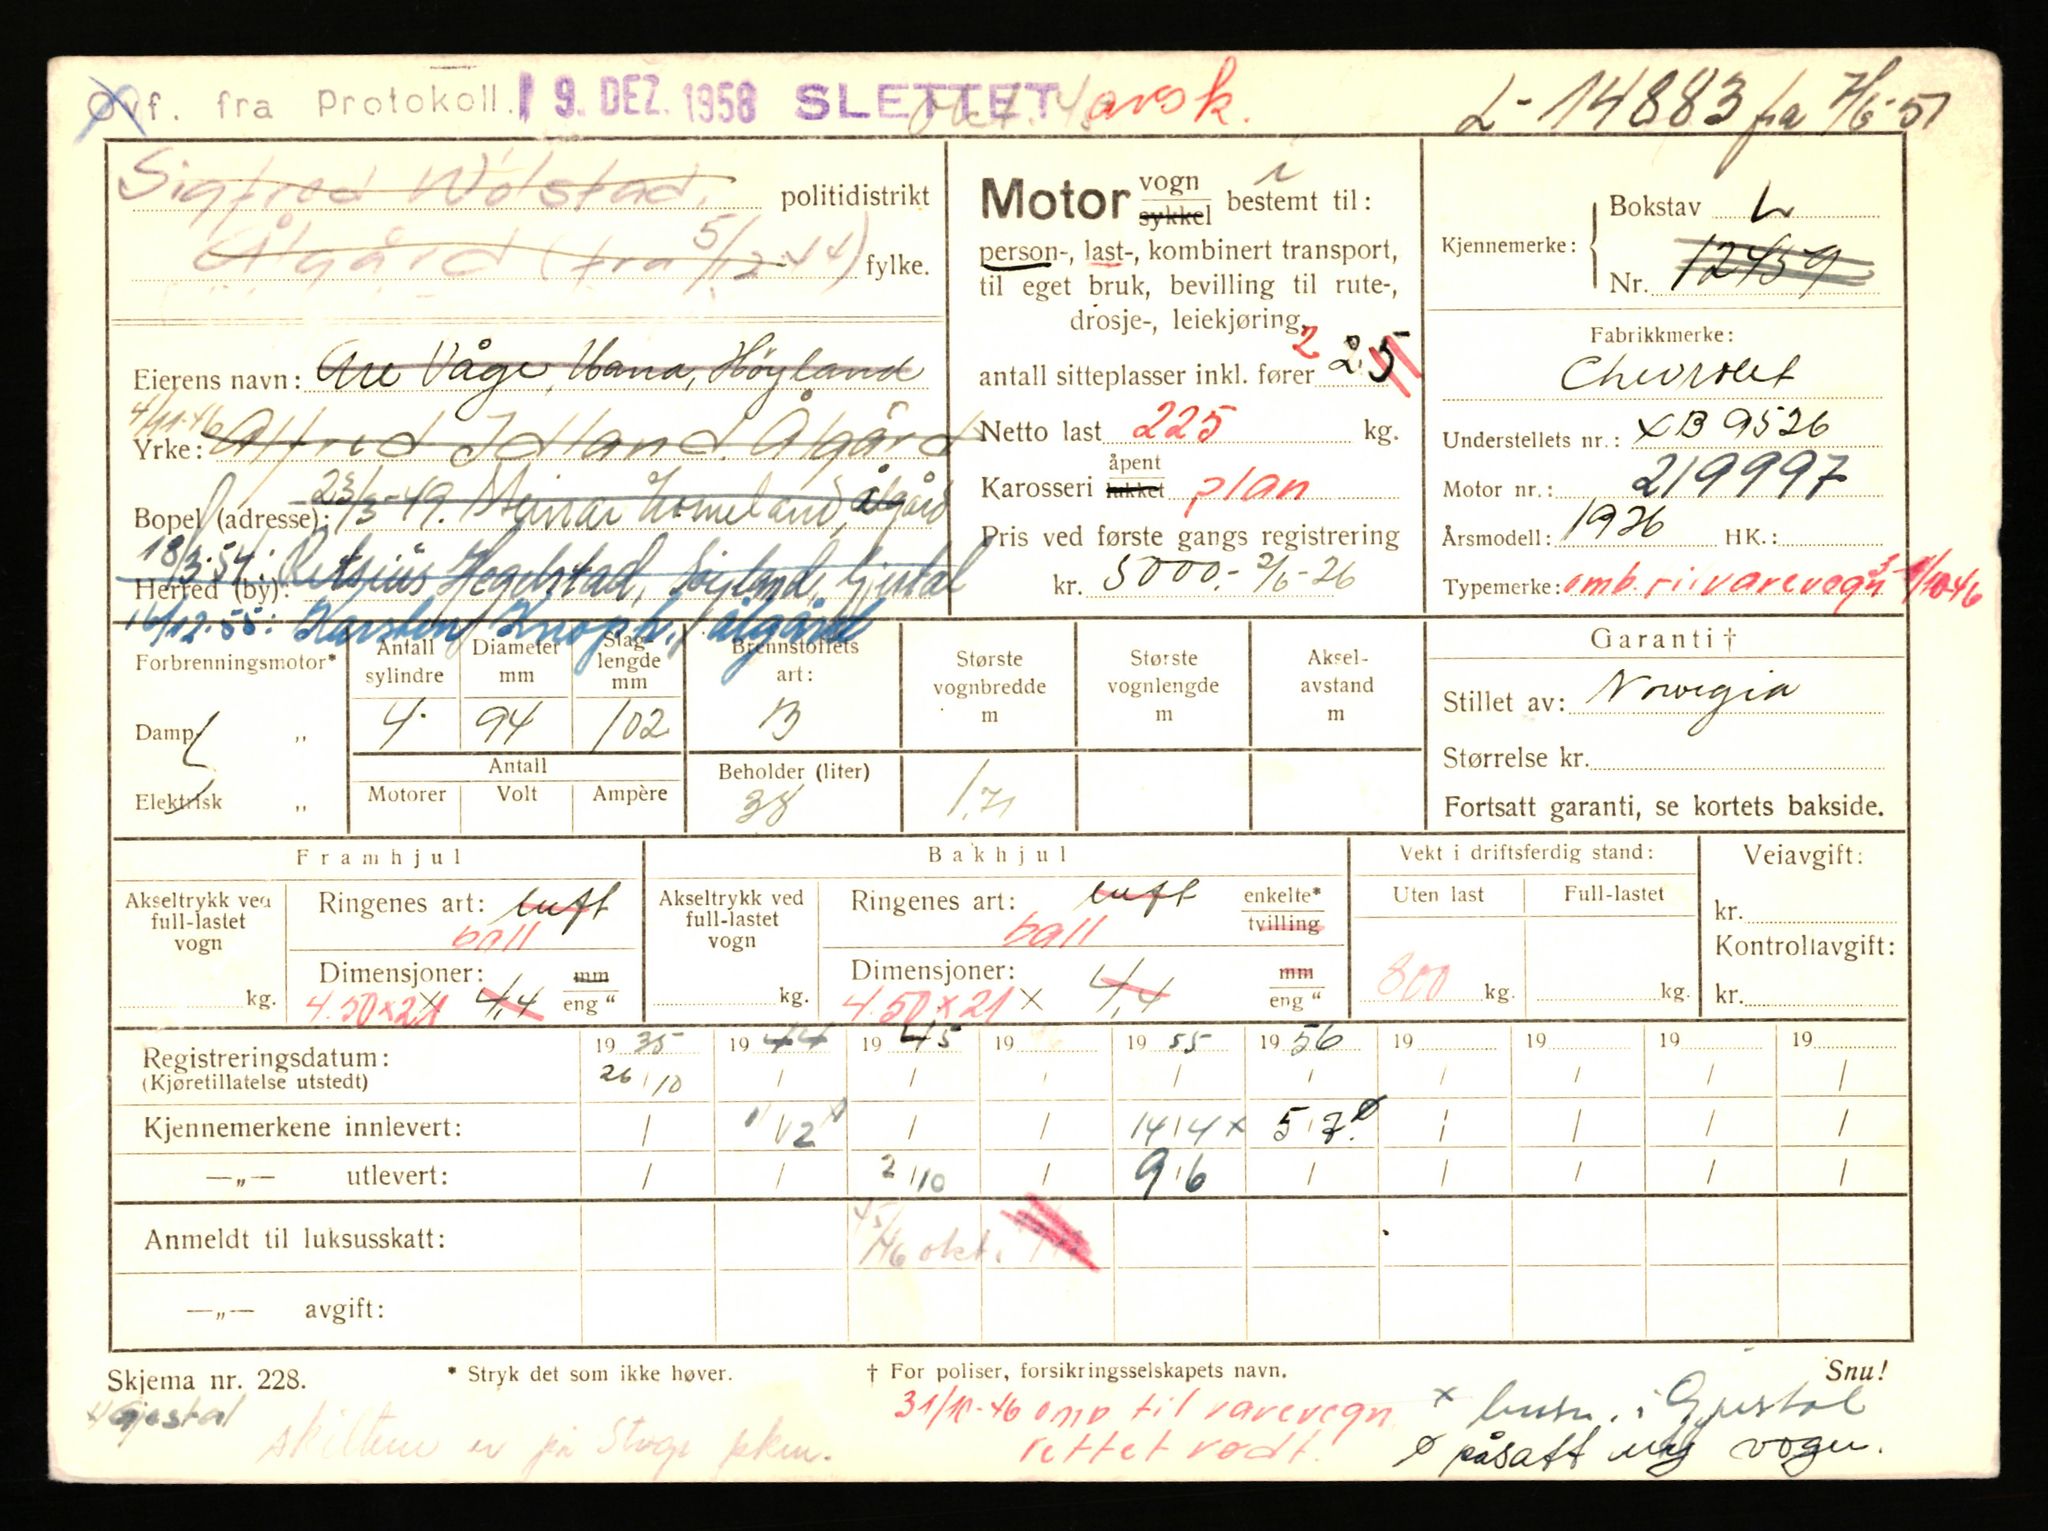 Ovf. fra Protokoll. 19. DEZ. 1958 SLETTET avsk. L-14883 fra 7/6-51
Sigfred Wolstad, politidistrikt
Ålgård (fra 5/12-44) fylke.
Eierens navn: Are Våge, Hana, Höyland
4/11-46 Alfred Idland. Ålgård
Yrke:
Bopel (adresse): 23/3-49. Meinar Homeland, Ålgård
18/3-54: Hegelstad, Gjestal
Herred (by):
16/12-55: Karsten Knoph, Ålgård
Motor vogn sykkel bestemt til:
person-, last-, kombinert transport,
til eget bruk, bevilling til rute-,
drosje-, leiekjøring,
antall sitteplasser inkl. fører 2
Netto last 225 kg.
Karosseri åpent lukket plan
Pris ved første gangs registrering
kr. 5000.- 2/6-26
Kjennemerke: Bokstav L
Nr. 12439
Fabrikkmerke:
Chevrolet
Understellets nr.: XB 9526
Motor nr.: 219997
Årsmodell: 1926 HK.:
Typemerke: omb. til varevogn
Forbrenningsmotor*
Damp- „
Elektrisk „
Antall sylindre Diameter mm Slag-lengde mm
4 94 102
Antall
Motorer Volt Ampère
Brennstoffets art:
B
Beholder (liter)
38
Største vognbredde m
1,71
Største vognlengde m
Aksel-avstand m
Garanti †
Stillet av: Norvegia
Størrelse kr.
Fortsatt garanti, se kortets bakside.
Framhjul
Akseltrykk ved full-lastet vogn
kg.
Ringenes art: luft
ball
Dimensjoner: mm
4.50x21 4,4 eng "
Bakhjul
Akseltrykk ved full-lastet vogn
kg.
Ringenes art: luft enkelte*
ball tvilling
Dimensjoner: mm
4.50x21 x 4,4 eng "
Vekt i driftsferdig stand:
Uten last Full-lastet
800 kg. kg.
Veiavgift:
kr.
Kontrollavgift:
kr.
Registreringsdatum: 1935 1944 1945 19 1955 1956 19 19 19 19
(Kjøretillatelse utstedt) 26/10
Kjennemerkene innlevert: 1/12 14/4 x 5/7 ø
—„— utlevert: 2/10 9/6
Anmeldt til luksusskatt: okt.
—„— avgift:
Skjema nr. 228. * Stryk det som ikke høver. † For poliser, forsikringsselskapets navn. Snu!
Gjestal
skiltene er på
31/10-46 omb til varevogn
rettet rødt.
x i Gjestal
ø påsatt ny vogn.